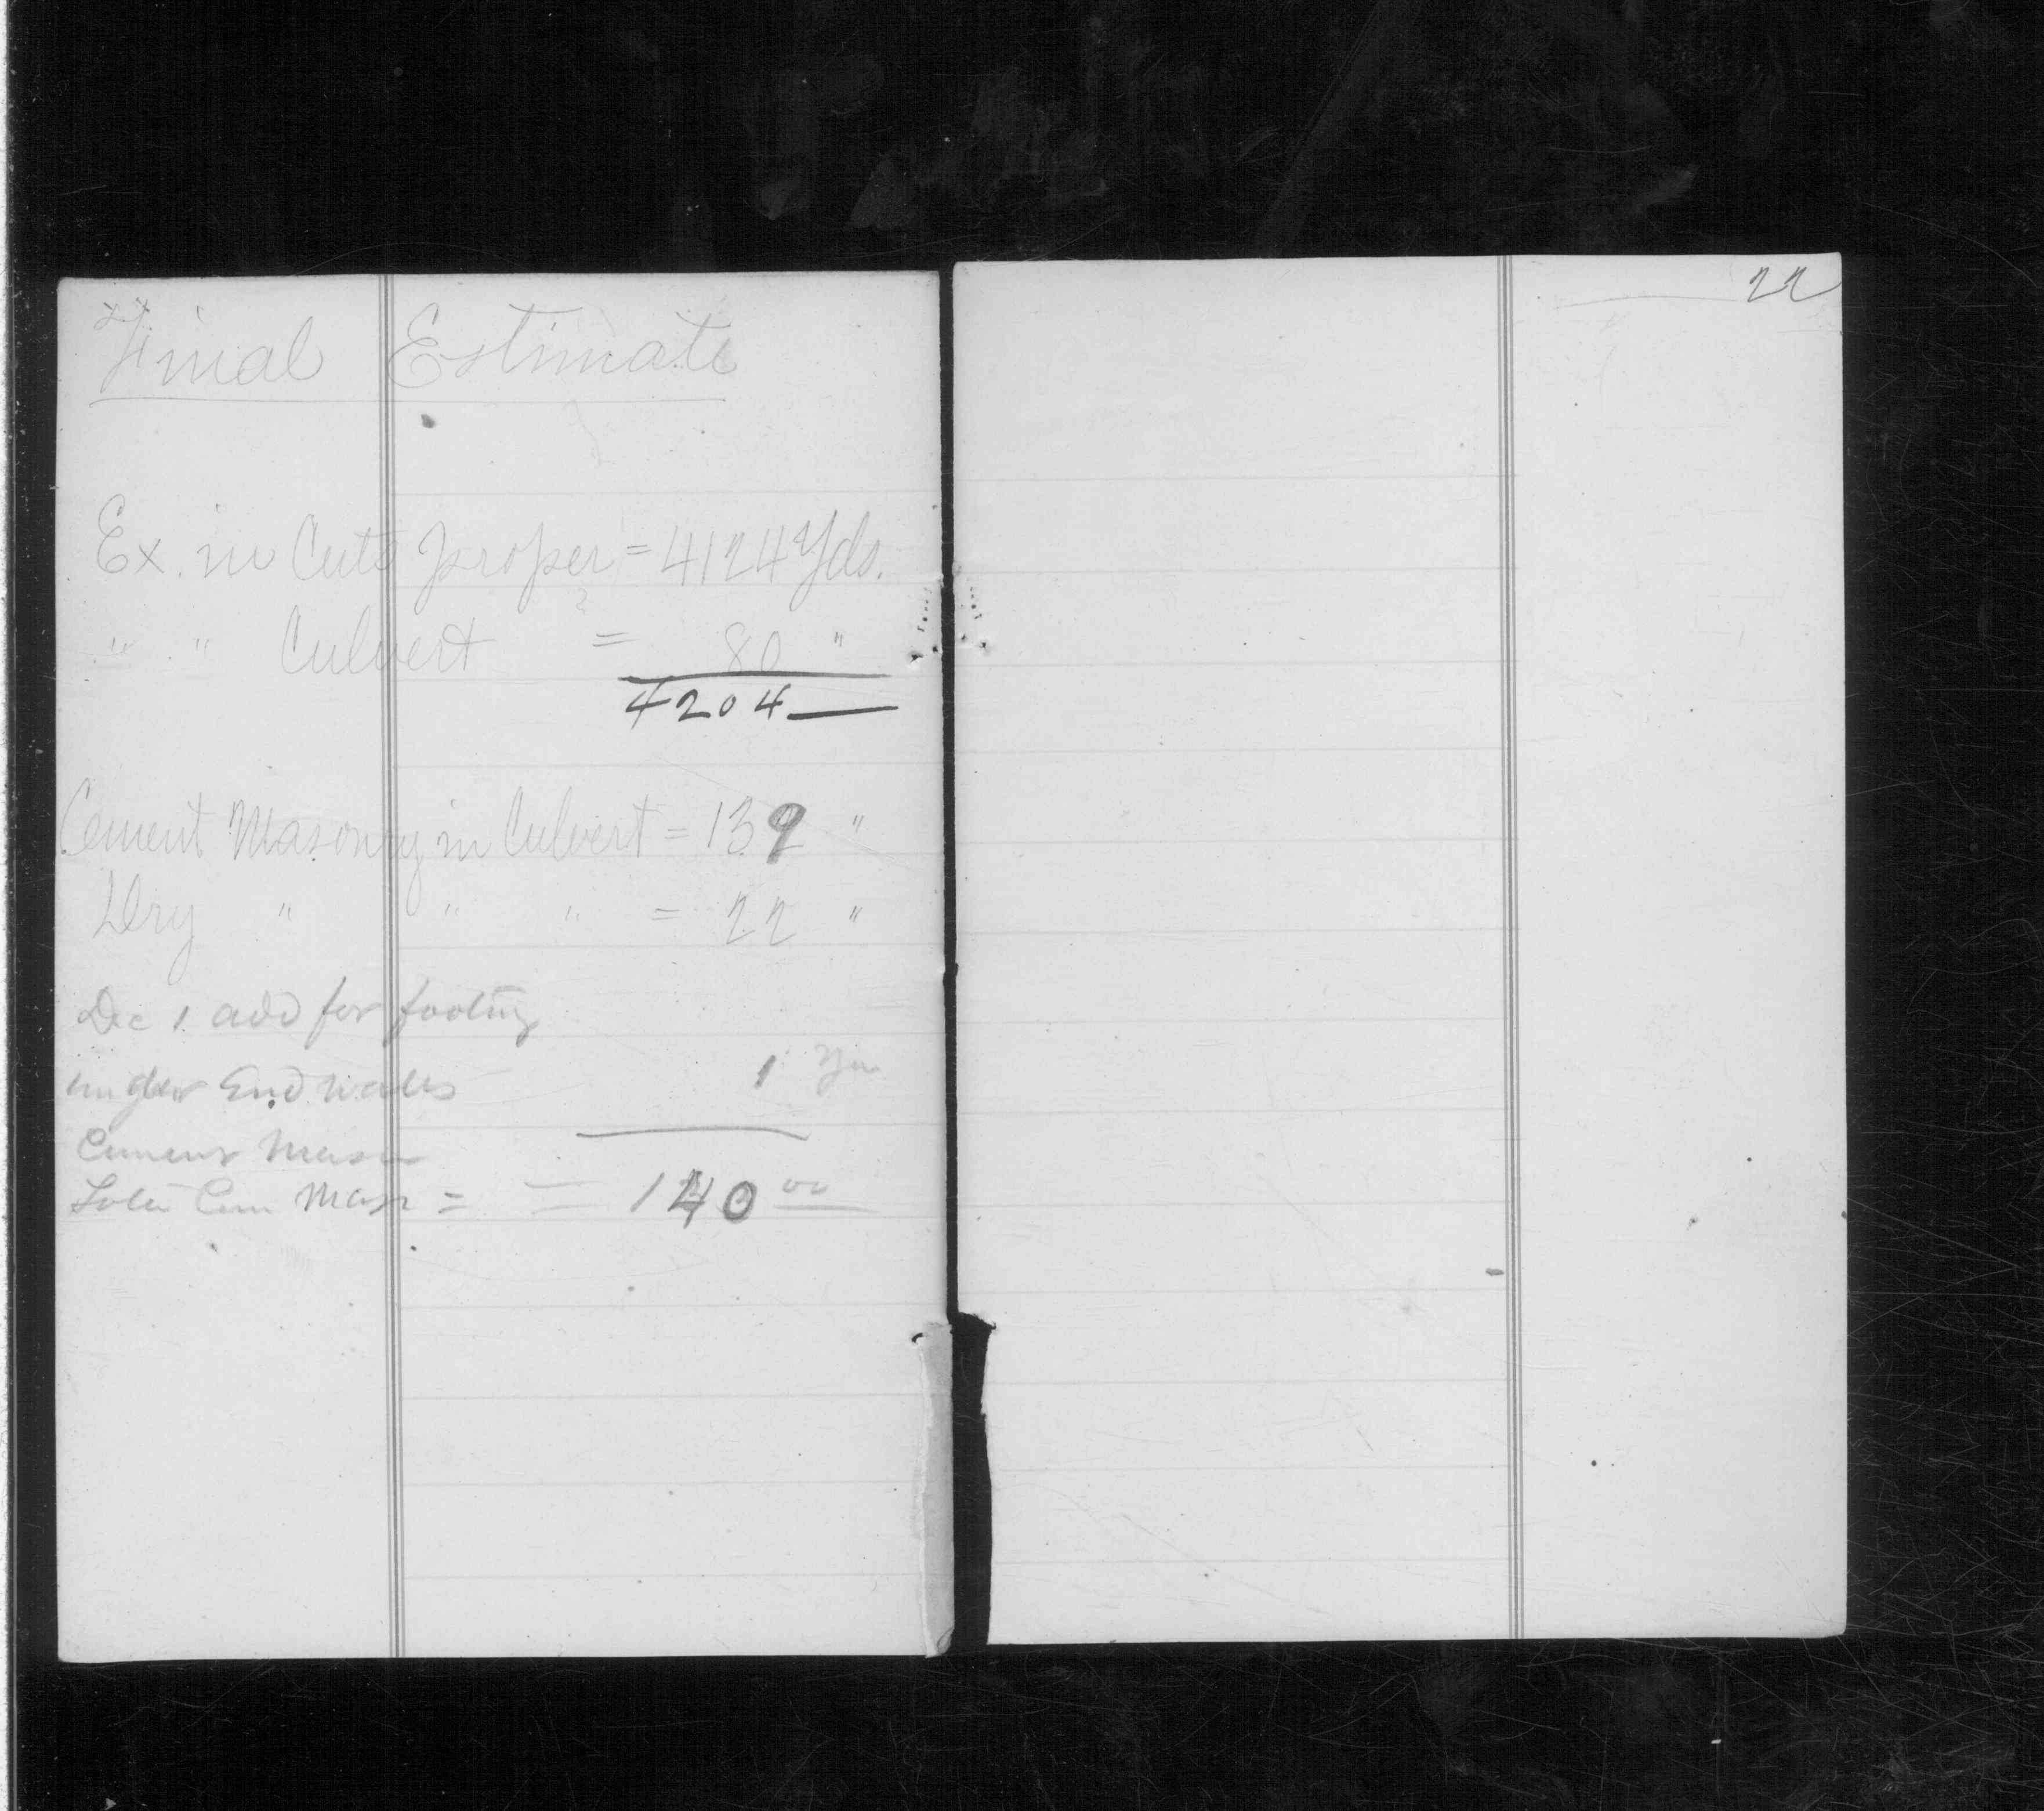 Final Estimate
Ex. in Cuts proper = 4124 Yds.
" " Culvert = 80 "
4204
Cement Masonry in Culvert = 139 "
Dry " " " = 22 "
Dec 1. add for footing
under End walls 1 Yd
Cement Mason
Total Cem Mason = = 140 00
22